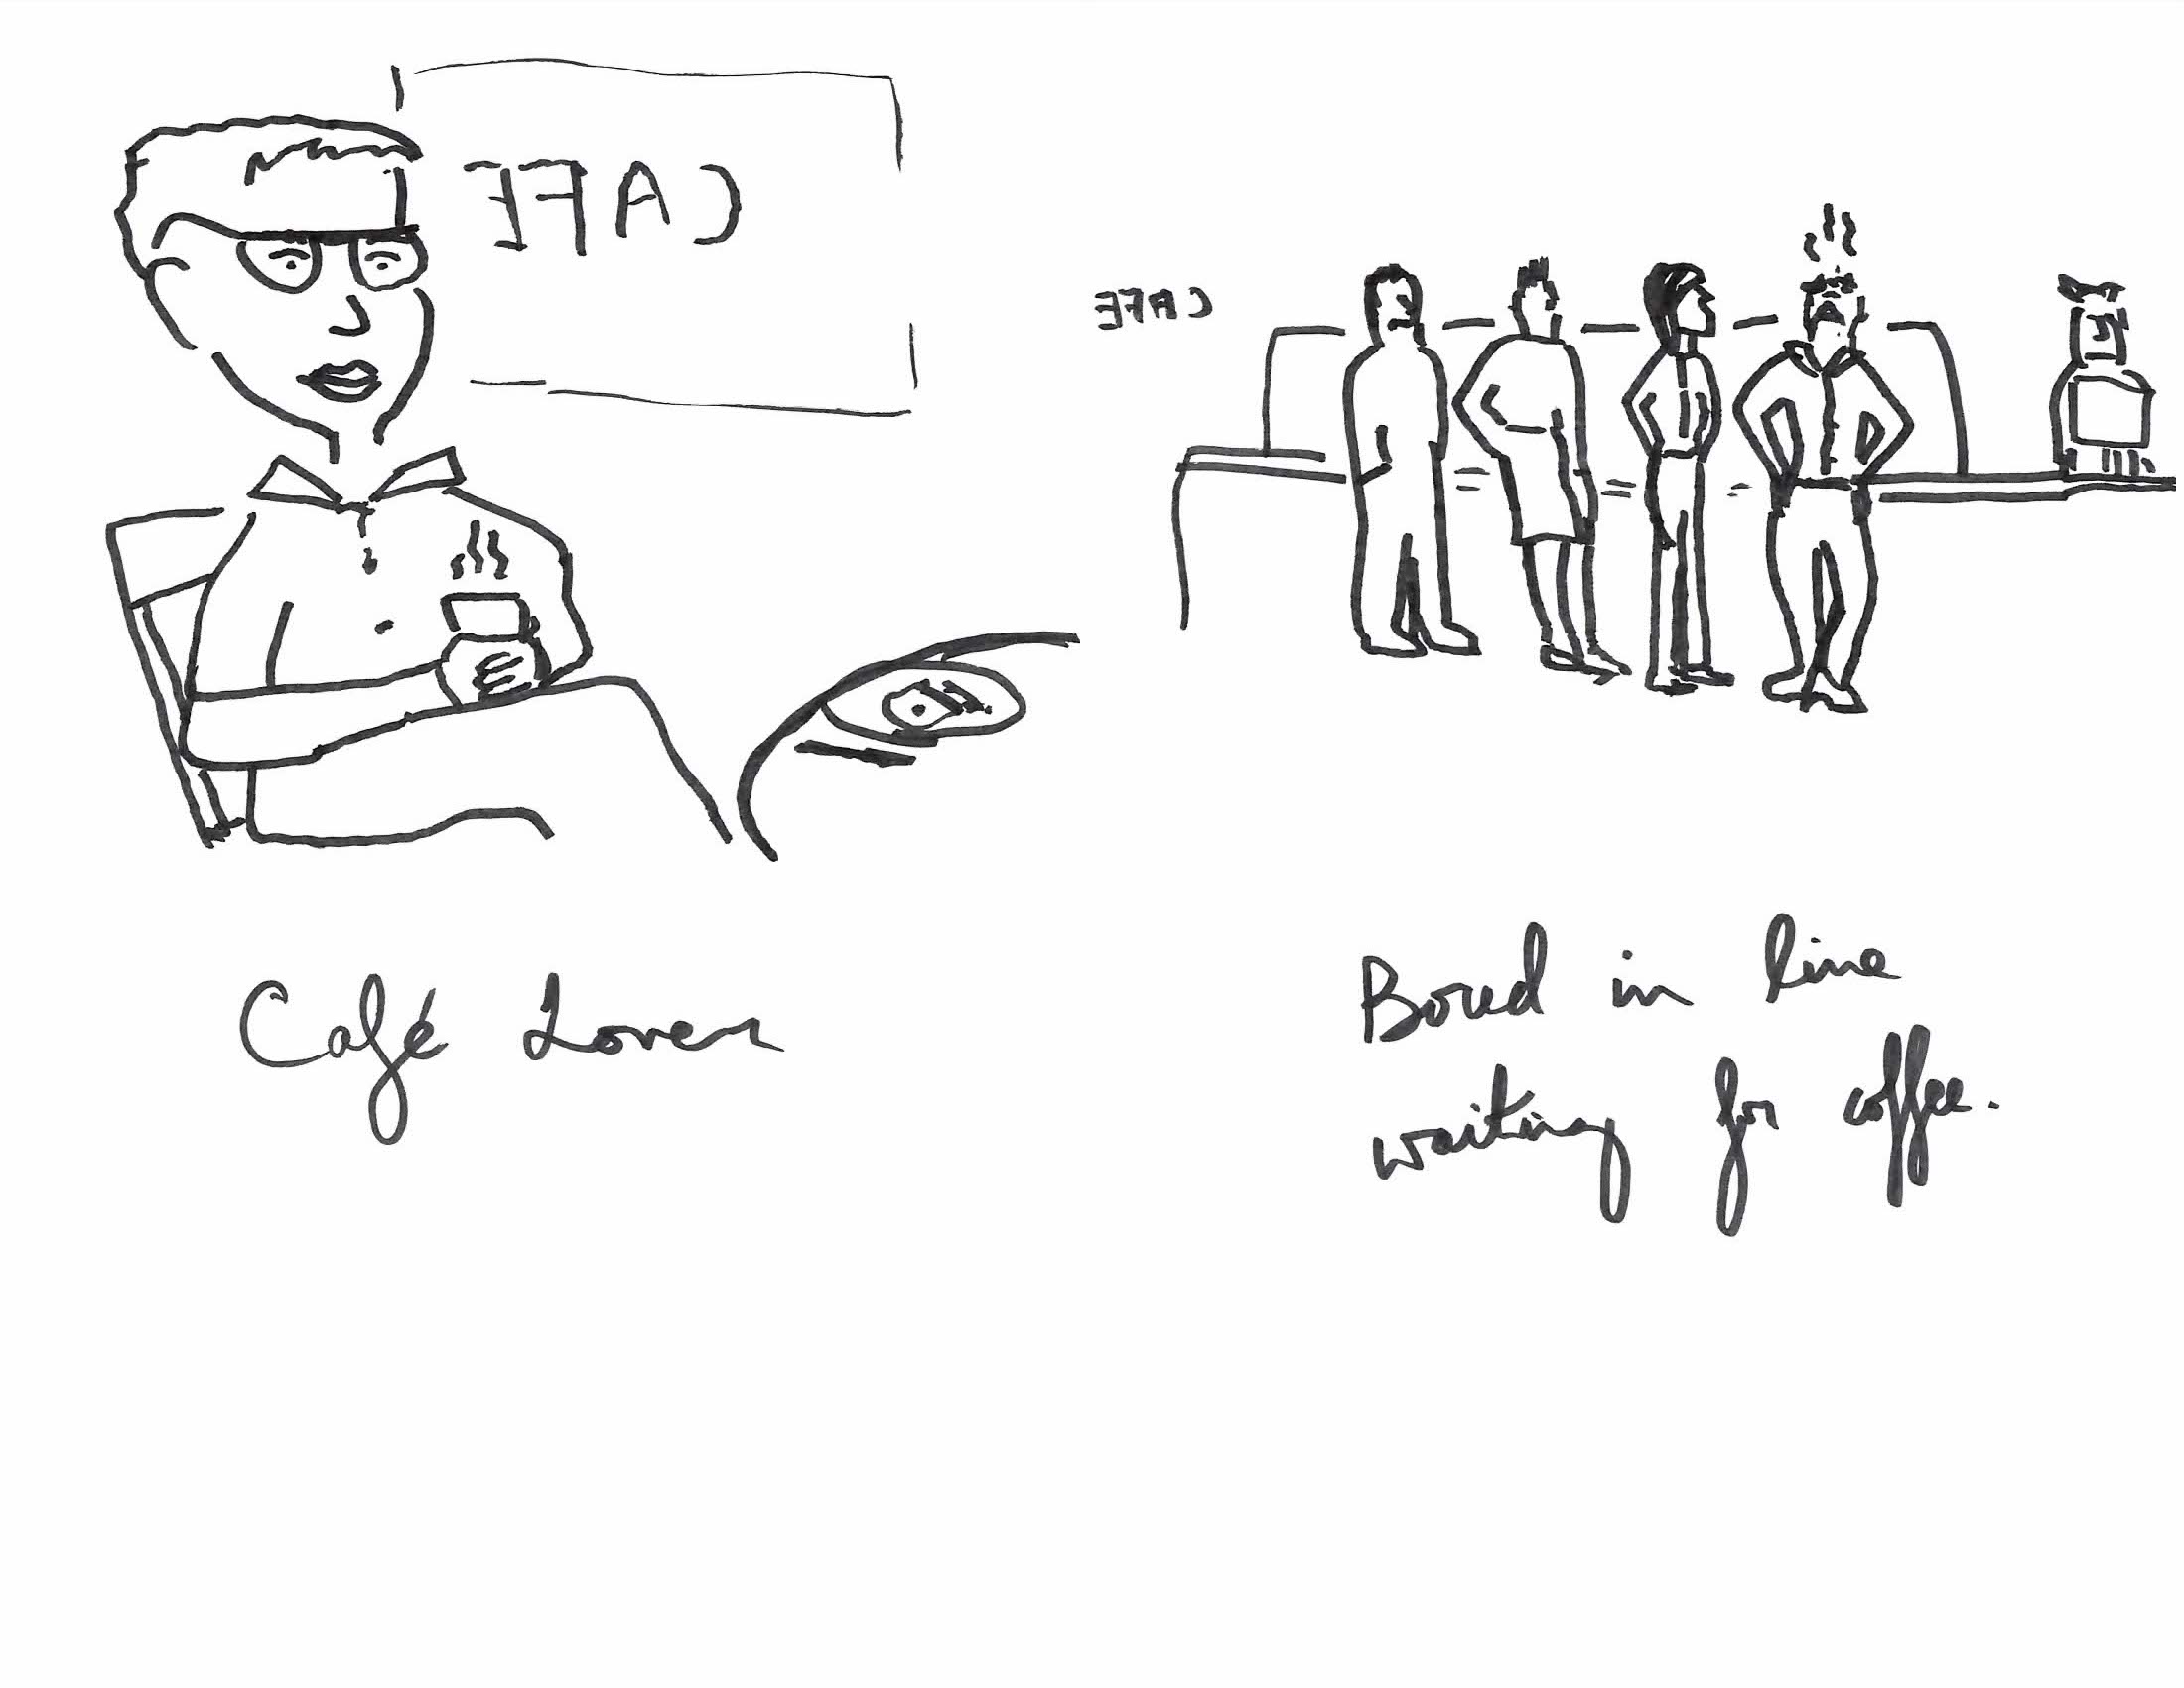 CAFE
Café Lover
CAFE
Bored in line
waiting for coffee.